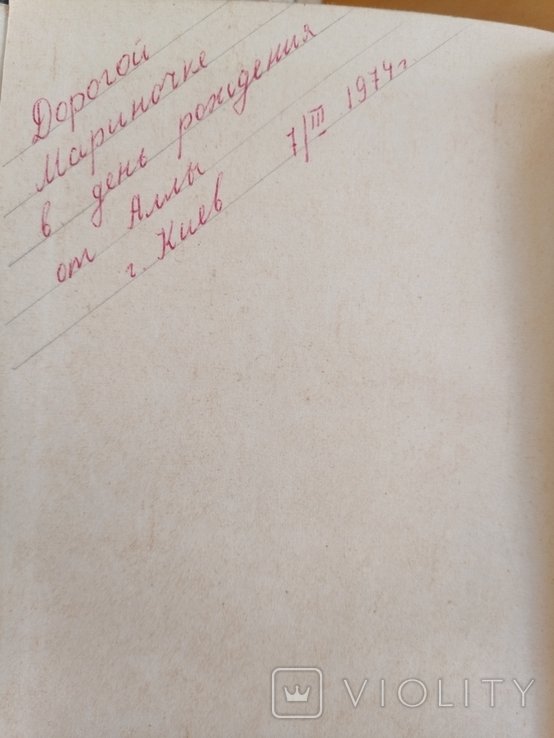 Дорогой
Мариночке
в день рождения
от Аллы 7/III 1974г
г. Киев
VIOLITY